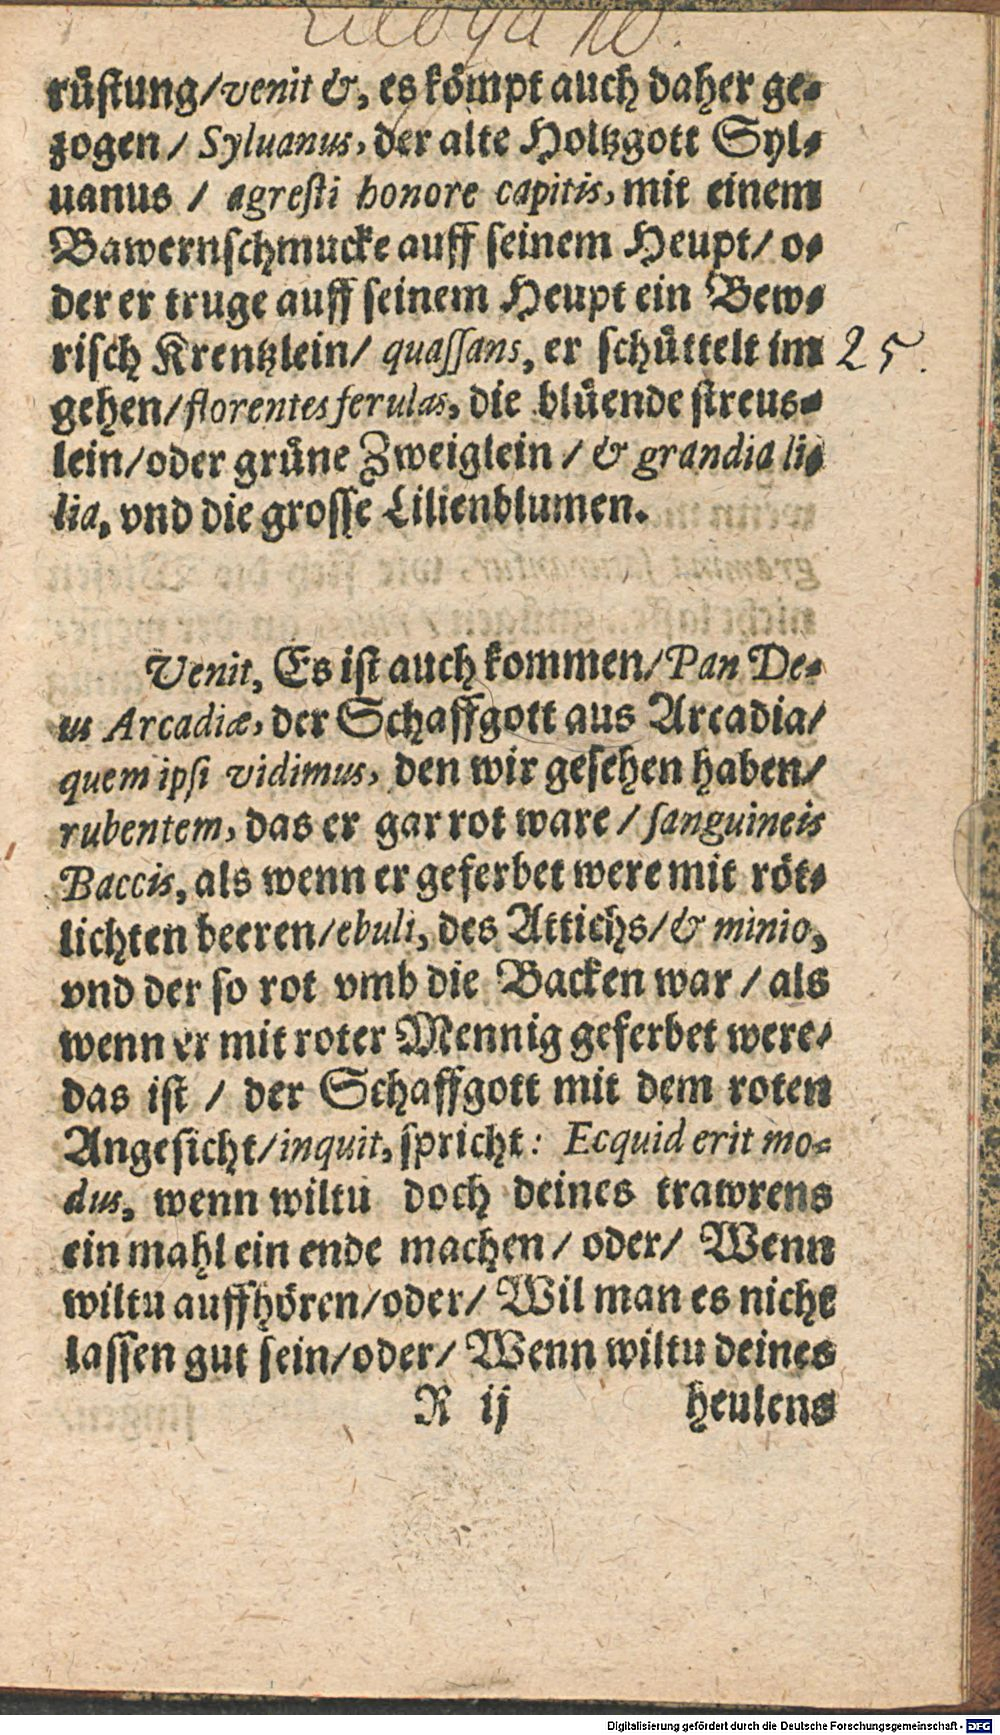 rüstung/venit &, es kömpt auch daher ge-
zogen / Sylvanus, der alte Holtzgott Syl-
uanus / agresti honore capitis, mit einem
Bawernschmucke auff seinem Heupt/ o-
der er truge auff seinem Heupt ein Bew-
risch Krentzlein/ quaſſans, er schüttelt im 25.
gehen/florentes ferulas, die blüende streus-
lein/oder grüne Zweiglein / & grandia li-
lia, vnd die grosse Lilienblumen.
Venit, Es ist auch kommen/Pan De-
us Arcadiæ, der Schaffgott aus Arcadia/
quem ipsi vidimus, den wir gesehen haben/
rubentem, das er gar rot ware / sanguineis
Baccis, als wenn er geferbet were mit röt-
lichten beeren/ebuli, des Attichs/& minio,
vnd der so rot vmb die Backen war / als
wenn er mit roter Mennig geferbet were/
das ist / der Schaffgott mit dem roten
Angesicht/inquit, spricht: Ecquid erit mo-
dus, wenn wiltu doch deines trawrens
ein mahl ein ende machen/ oder/ Wenn
wiltu auffhören/oder/ Wil man es nicht
lassen gut sein/oder/ Wenn wiltu deines
R ij heulens
Digitalisierung gefördert durch die Deutsche Forschungsgemeinschaft - DFG